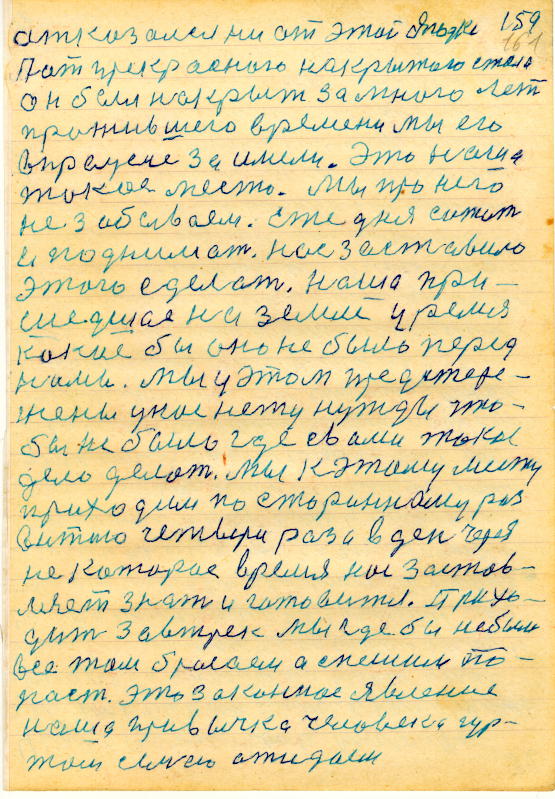 отказался ни от этой 159
161
Пот прекрасного накрытого стола
он был накрыт за много лет
прожившего времени мы его
заимели. Это наша
такое место. Мы про него
не забываем. сотот
и поднимат. нас заставило
этого сделат. наша при-
шедшае на землй уремя
какие бы оно не было перед
нами. Мы у этом предстере-
жены у нас нету нужды что-
бы не было где с вами такое
дело делат. Мы к этому месту
приходим по сторонному раз
витаю четыри раза в ден через
не которое время нас застав-
ляет знат и готовится. Прихо-
дит завтрек мы где бы небыли
все там бросаем а спешим по-
паст. Это законное явление
наша привычка человека гур-
том ожидаем